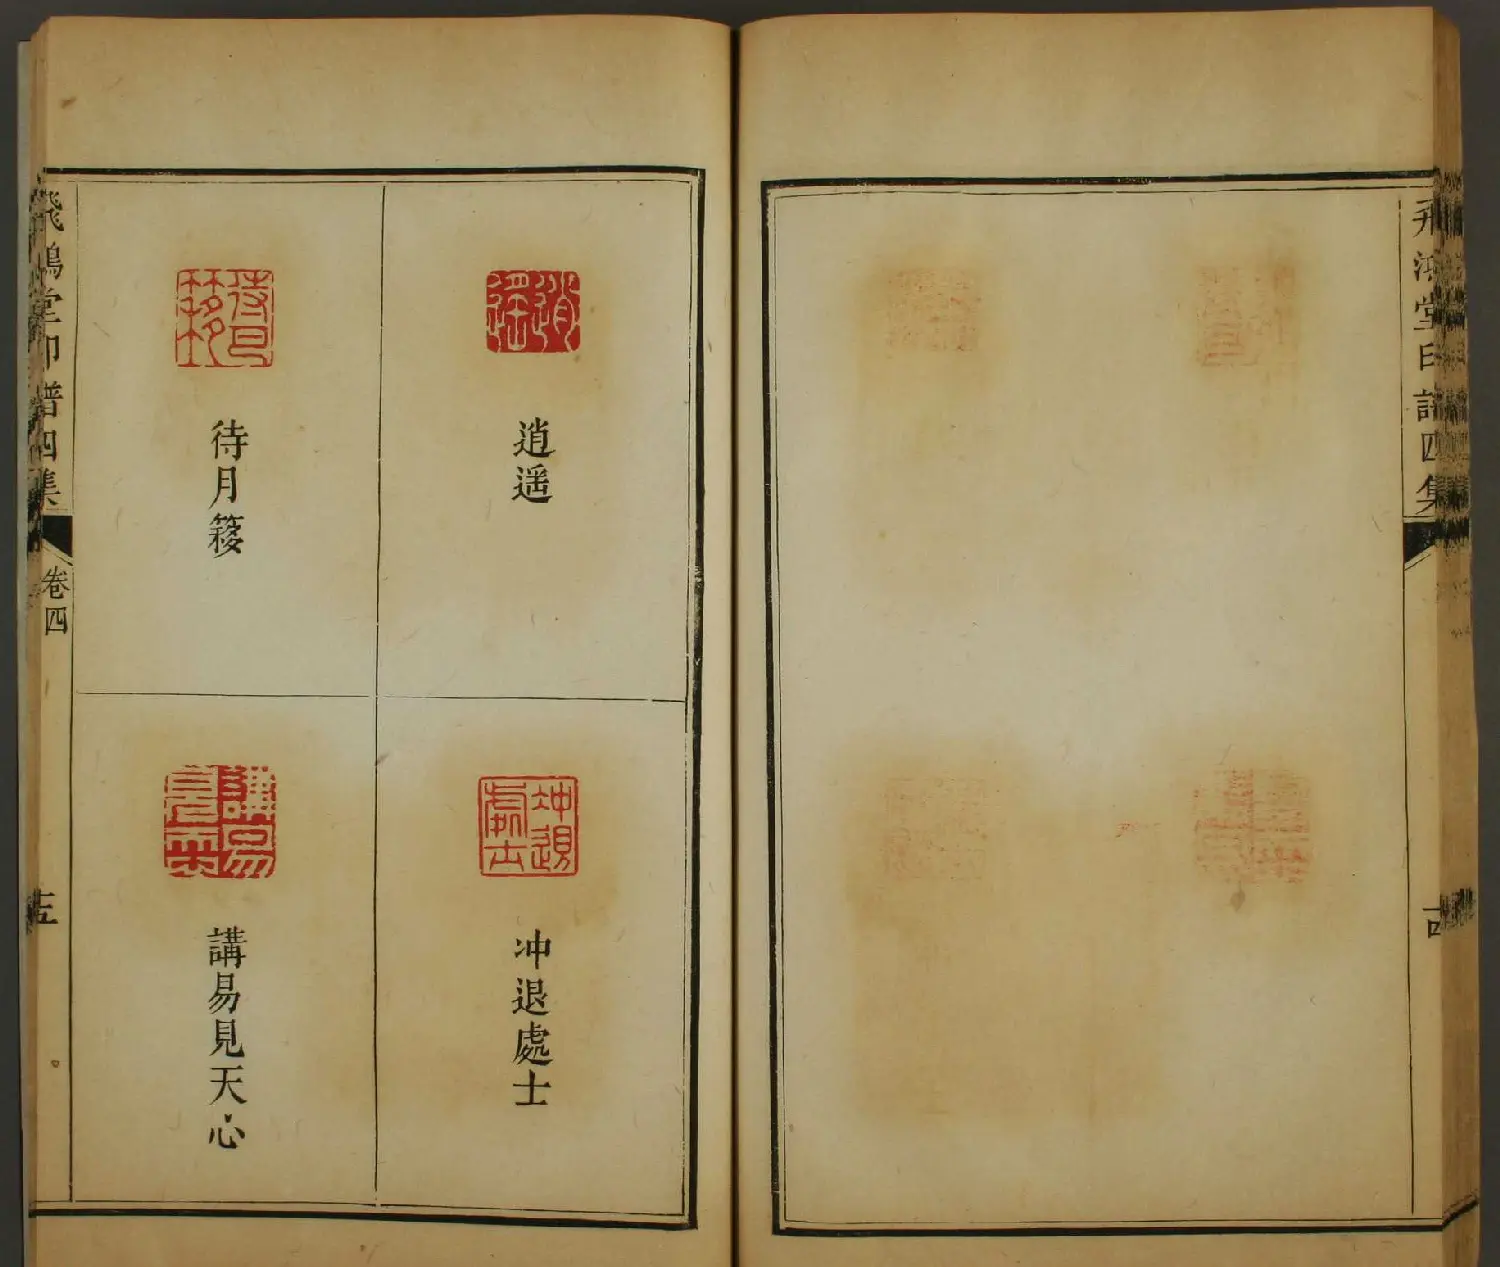 飛鴻堂印譜四集
逍遥
冲退處士
待月簃
講易見天心
飛鴻堂印譜四集
卷四